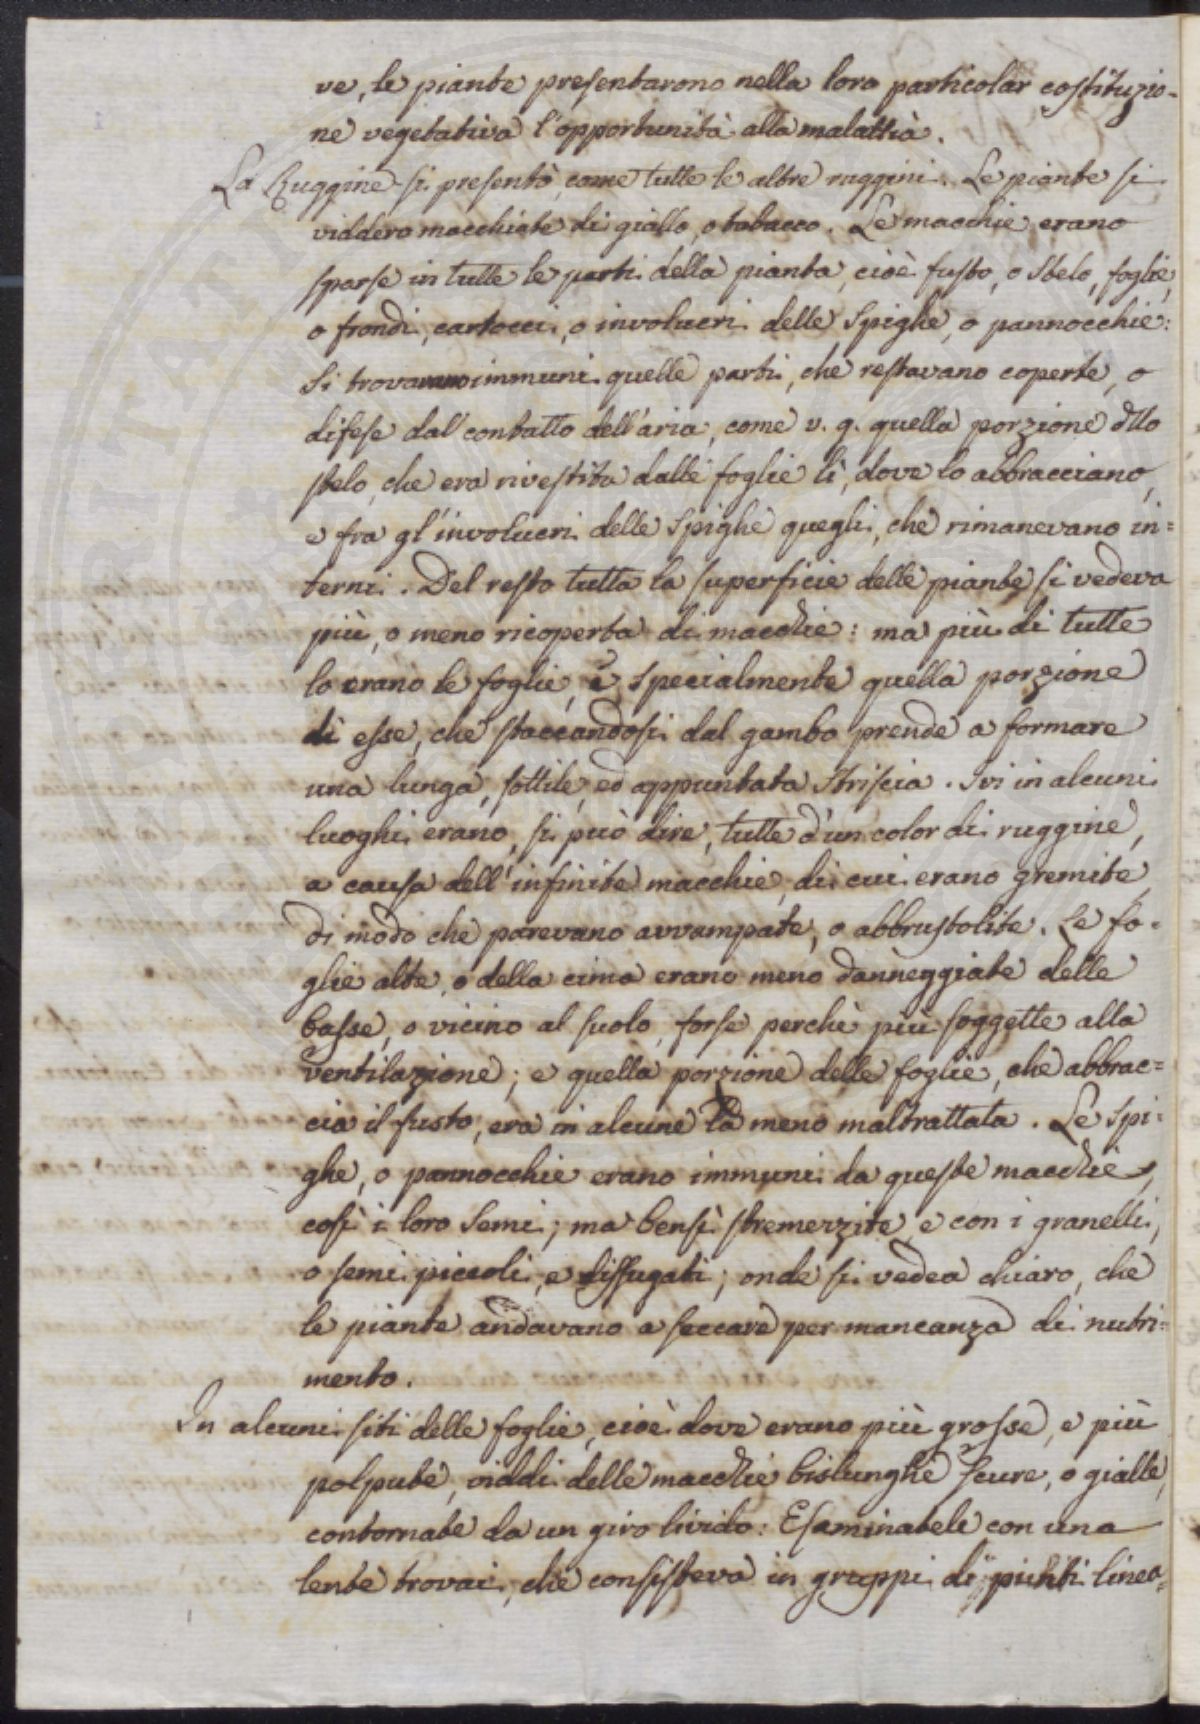 ve, le piante presentarono nella loro particolar costituzio-
ne vegetativa l'opportunità alla malattia.
La Ruggine si presentò, come tutte le altre ruggini. Le piante si
viddero macchiate di giallo, o tabacco. Le macchie erano
sparse in tutte le parti della pianta, cioè fusto, o stelo, foglie,
o frondi, cartocci, o involucri delle Spighe, o pannocchie:
Si trovavano immuni quelle parti, che restavano coperte, o
difese dal contatto dell'aria, come v. g. quella porzione dllo
stelo, che era rivestita dalle foglie lì, dove lo abbracciano,
e fra gl'involucri delle Spighe quegli, che rimanevano in=
terni. Del resto tutta la superficie delle piante si vedeva
più, o meno ricoperta di macchie: ma più di tutte
lo erano le foglie, e specialmente quella porzione
di esse, che staccandosi dal gambo prende a formare
una lunga, sottile, ed appuntata striscia. Ivi in alcuni
luoghi erano, si può dire, tutte d'un color di ruggine,
a causa dell'infinite macchie, di cui erano gremite,
di modo che parevano avvampate, o abbrustolite. Le fo-
glie alte, o della cima erano meno danneggiate delle
basse, o vicino al suolo, forse perchè più soggette alla
ventilazione; e quella porzione delle foglie, che abbrac=
cia il fusto, era in alcune la meno maltrattata. Le Spi-
ghe, o pannocchie erano immuni da queste macchie,
così i loro Semi; ma bensì stremenzite, e con i granelli,
o semi piccoli, e; onde si vedea chiaro, che
le piante andavano a seccare per mancanza di nutri=
mento.
In alcuni siti delle foglie, cioè dove erano più grosse, e più
polpute, viddi delle macchie bislunghe scure, o gialle,
contornate da un giro livido: Esaminatele con una
lente trovai, che consisteva in gruppi di punti linea-